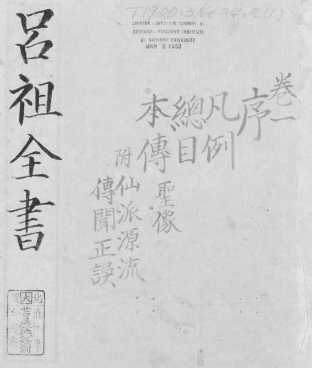 卷一
序
凡例
總目
本傳 聖像
附仙派源流
傳聞正誤
呂祖全書
T1920.3/6624.2(1)
CHINESE-JAPANESE LIBRARY OF
HARVARD-YENCHING INSTITUTE
AT HARVARD UNIVERSITY